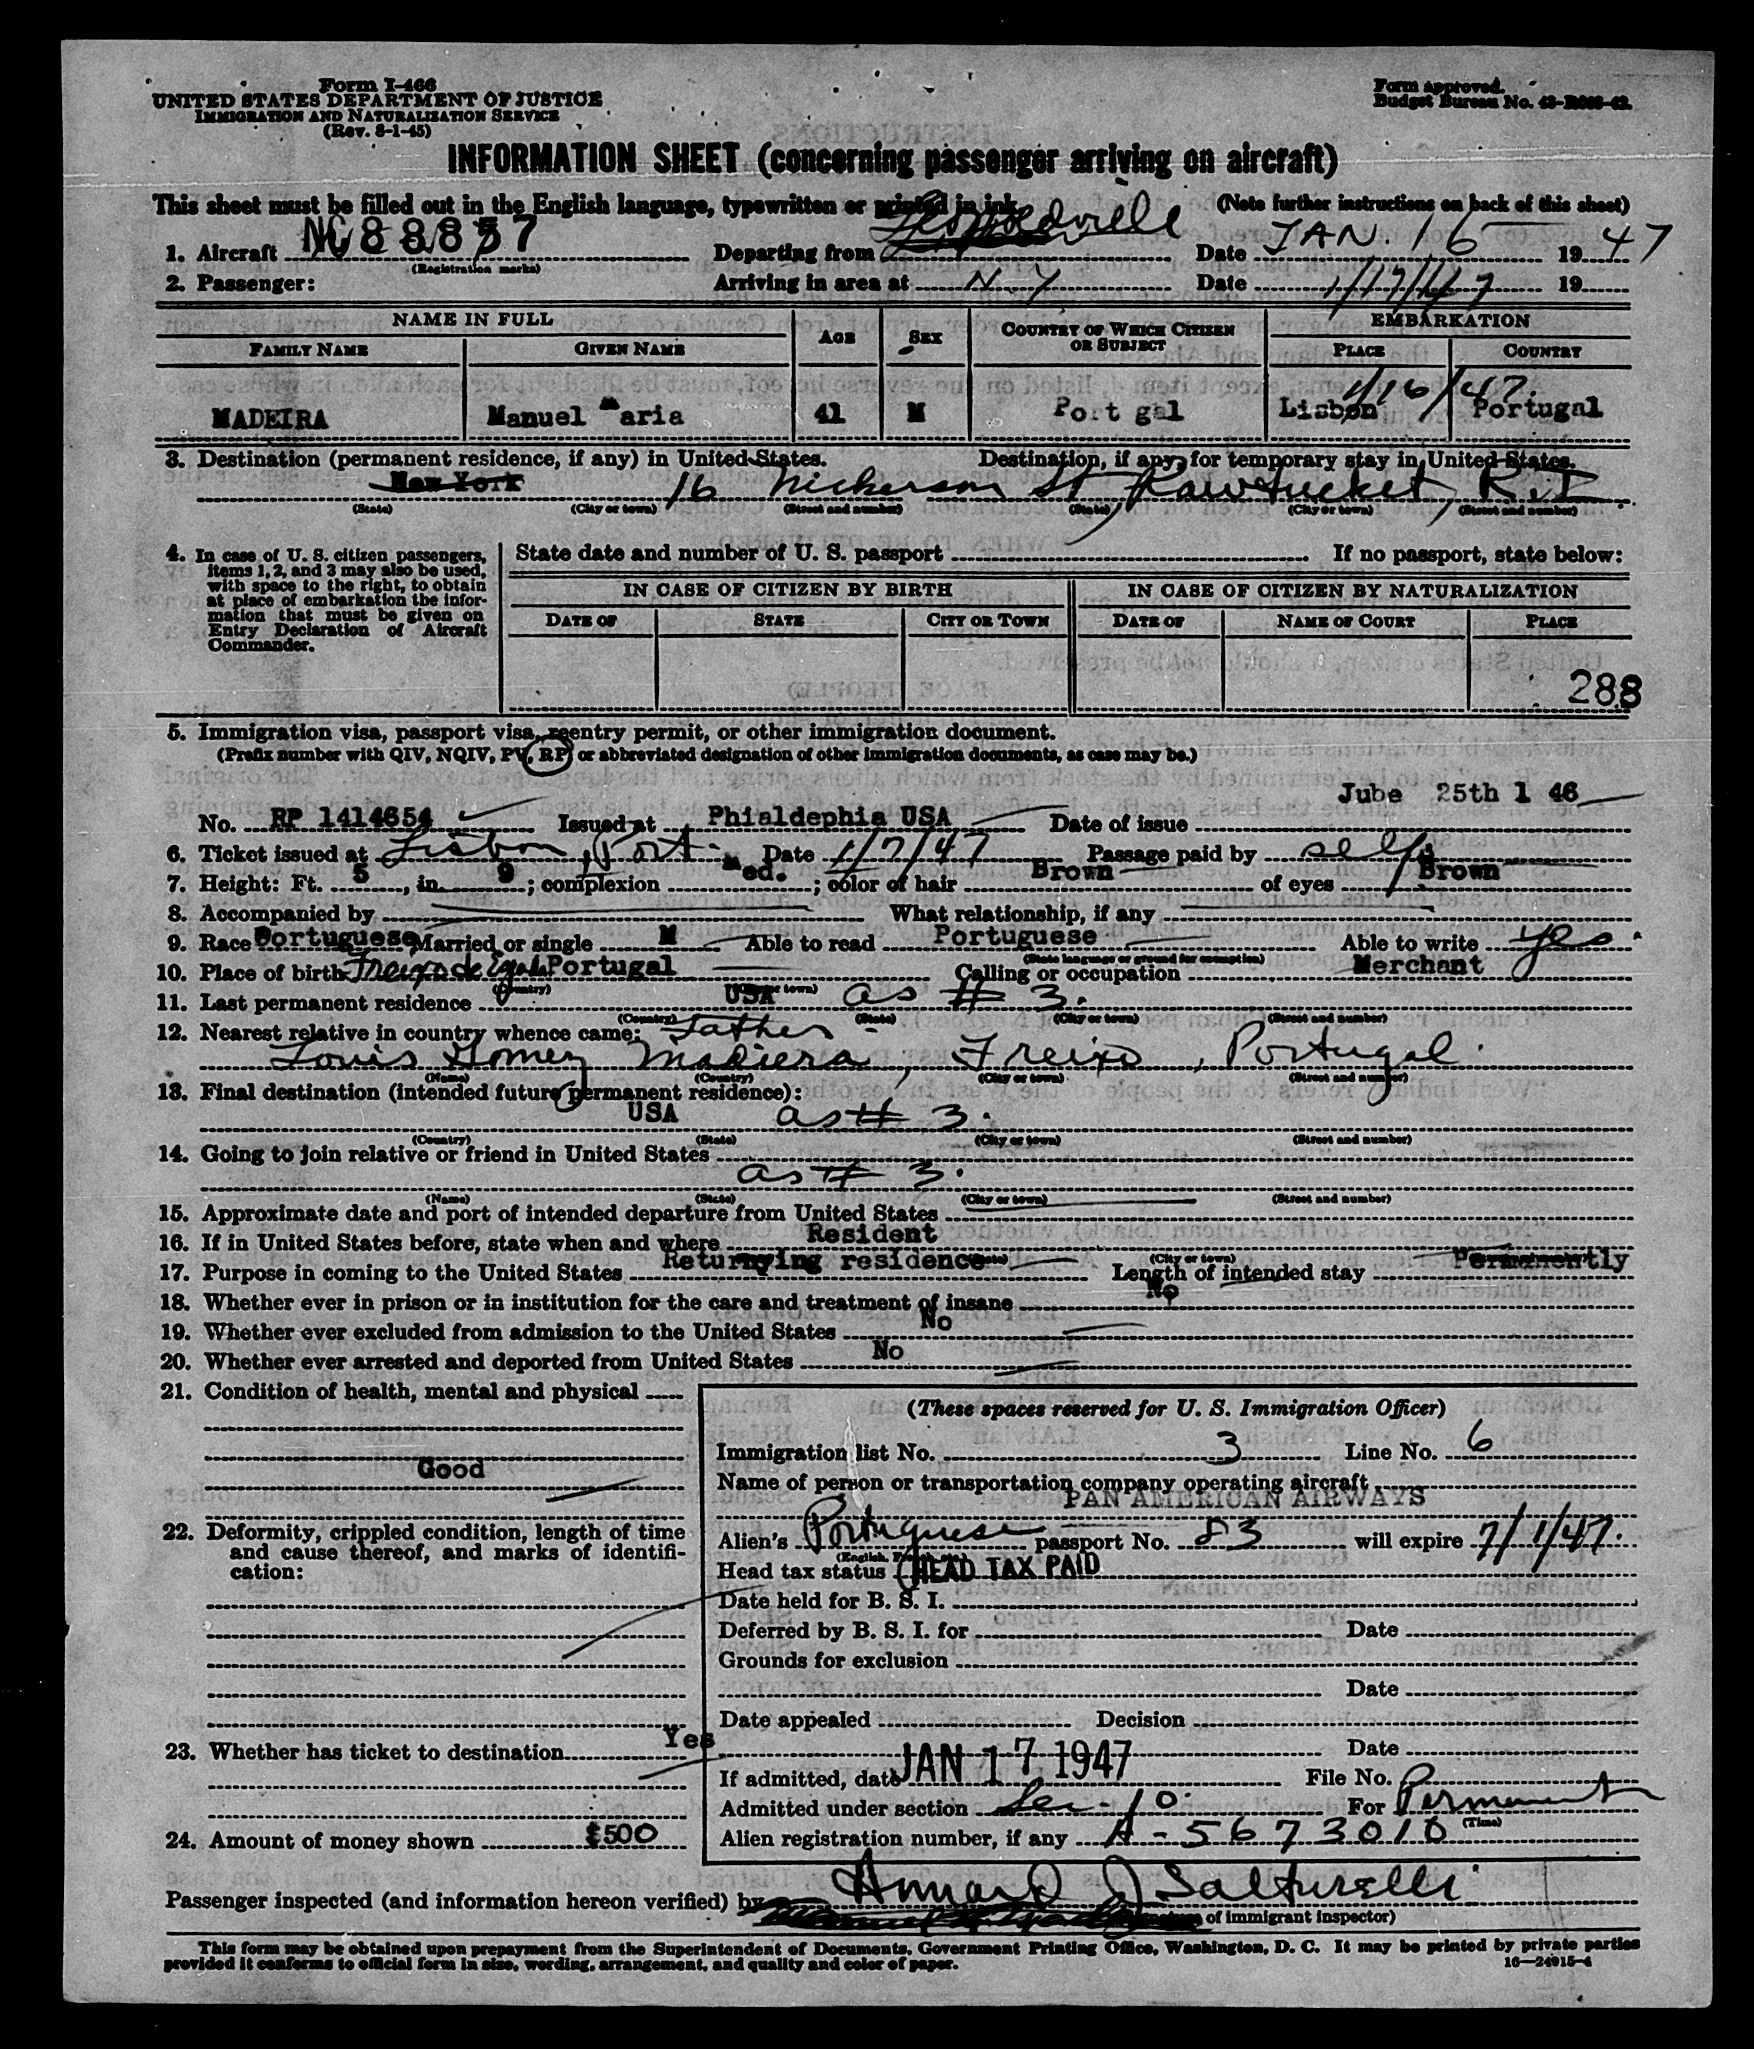 Form I-466
UNITED STATES DEPARTMENT OF JUSTICE
IMMIGRATION AND NATURALIZATION SERVICE
(Rev. 8-1-45)
Form approved.
Budget Bureau No.
INFORMATION SHEET (concerning passenger arriving on aircraft)
This sheet must be filled out in the English language, typewritten or printed in ink. (Note further instructions on back of this sheet)
1. Aircraft NC 88857 (Registration marks) Departing from Leopoldville Date JAN. 16 1947
2. Passenger: Arriving in area at N Y Date 1/17/47 19
NAME IN FULL AGE SEX COUNTRY OF WHICH CITIZEN OR SUBJECT EMBARKATION
FAMILY NAME GIVEN NAME PLACE COUNTRY
1/16/47.
MADEIRA Manuel Maria 41 M Port gal Lisbon Portugal
3. Destination (permanent residence, if any) in United States. Destination, if any, for temporary stay in United States.
New York 16 Nickerson St, Pawtucket, R.I.
(State) (City or town) (Street and number) (State) (City or town) (Street and number)
4. In case of U. S. citizen passengers, items 1, 2, and 3 may also be used, with space to the right, to obtain at place of embarkation the information that must be given on Entry Declaration of Aircraft Commander.
State date and number of U. S. passport If no passport, state below:
IN CASE OF CITIZEN BY BIRTH IN CASE OF CITIZEN BY NATURALIZATION
DATE OF STATE CITY OR TOWN DATE OF NAME OF COURT PLACE
288
5. Immigration visa, passport visa, reentry permit, or other immigration document.
(Prefix number with QIV, NQIV, PV, RP, or abbreviated designation of other immigration documents, as case may be.)
Jube 25th 1 46
No. RP 1414654 Issued at Phialdephia USA Date of issue
6. Ticket issued at Lisbon, Port. Date 1/7/47 Passage paid by self
7. Height: Ft. 5, in. 9; complexion Med.; color of hair Brown of eyes Brown
8. Accompanied by What relationship, if any
9. Race Portuguese Married or single M Able to read Portuguese Able to write yes.
(State language or ground for exemption)
10. Place of birth Freixo de Portugal Calling or occupation Merchant
(Country) (City or town)
11. Last permanent residence USA as # 3.
(Country) (State) (City or town) (Street and number)
12. Nearest relative in country whence came: Father
Louis Gomez Madiera, Freixo, Portugal.
(Name) (Country) (City or town) (Street and number)
13. Final destination (intended future permanent residence):
USA as # 3.
(Country) (State) (City or town) (Street and number)
14. Going to join relative or friend in United States
as # 3.
(Name) (State) (City or town) (Street and number)
15. Approximate date and port of intended departure from United States
16. If in United States before, state when and where Resident
(State) (City or town)
17. Purpose in coming to the United States Returnying residence Length of intended stay Permenently
18. Whether ever in prison or in institution for the care and treatment of insane No
19. Whether ever excluded from admission to the United States No
20. Whether ever arrested and deported from United States No
21. Condition of health, mental and physical
Good
22. Deformity, crippled condition, length of time and cause thereof, and marks of identification:
23. Whether has ticket to destination Yes
24. Amount of money shown $500
(These spaces reserved for U. S. Immigration Officer)
Immigration list No. 3 Line No. 6
Name of person or transportation company operating aircraft
PAN AMERICAN AIRWAYS
Alien's Portuguese passport No. 83 will expire 7/1/47.
Head tax status HEAD TAX PAID
Date held for B. S. I.
Deferred by B. S. I. for Date
Grounds for exclusion
Date
Date appealed Decision
Date
If admitted, date JAN 17 1947 File No.
Admitted under section Sec. 10. For Permanent
(Time)
Alien registration number, if any A-5673010
Passenger inspected (and information hereon verified) by Howard J Salturelli
of immigrant inspector)
This form may be obtained upon prepayment from the Superintendent of Documents, Government Printing Office, Washington, D. C. It may be printed by private parties
provided it conforms to official form in size, wording, arrangement, and quality and color of paper.
16—24915-4